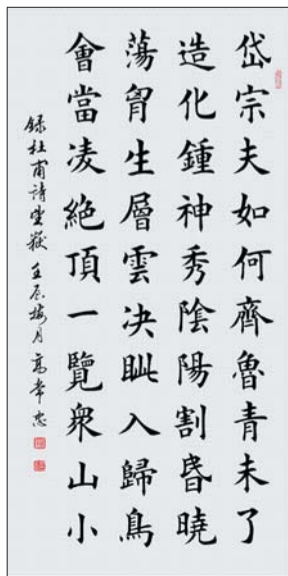 岱宗夫如何齊魯青未了
造化鍾神秀陰陽割昏曉
蕩胷生層雲決眦入歸鳥
會當凌絕頂一覽眾山小
録杜甫詩望嶽壬辰梅月高常忠